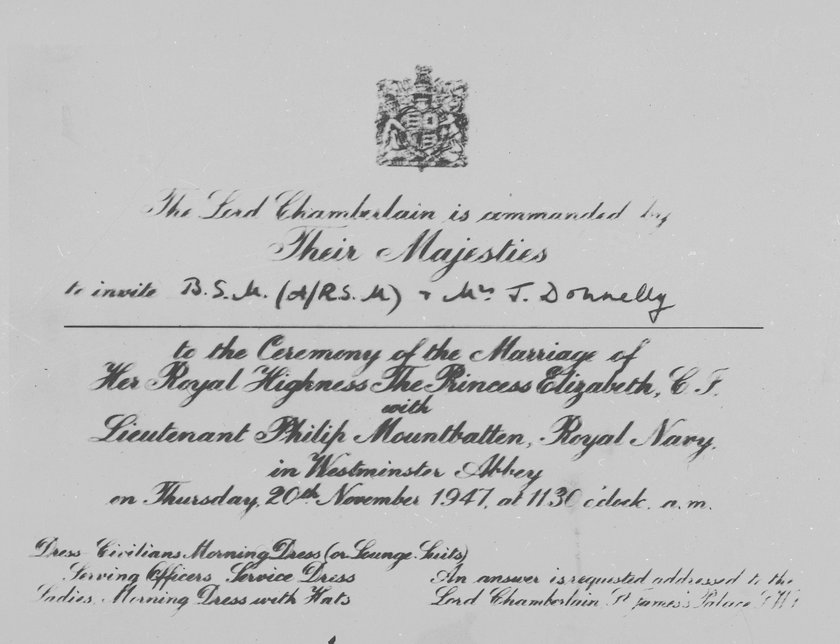 The Lord Chamberlain is commanded by
Their Majesties
to invite B.S.M. (A/R.S.M.) + Mrs J. Donnelly
to the Ceremony of the Marriage of
Her Royal Highness The Princess Elizabeth, C.I.
with
Lieutenant Philip Mountbatten, Royal Navy,
in Westminster Abbey
on Thursday, 20th November 1947, at 11.30 o'clock, a.m.
Dress: Civilians, Morning Dress (or Lounge Suits)
Serving Officers, Service Dress
Ladies, Morning Dress with Hats
An answer is requested addressed to the
Lord Chamberlain, St James's Palace, S.W.1